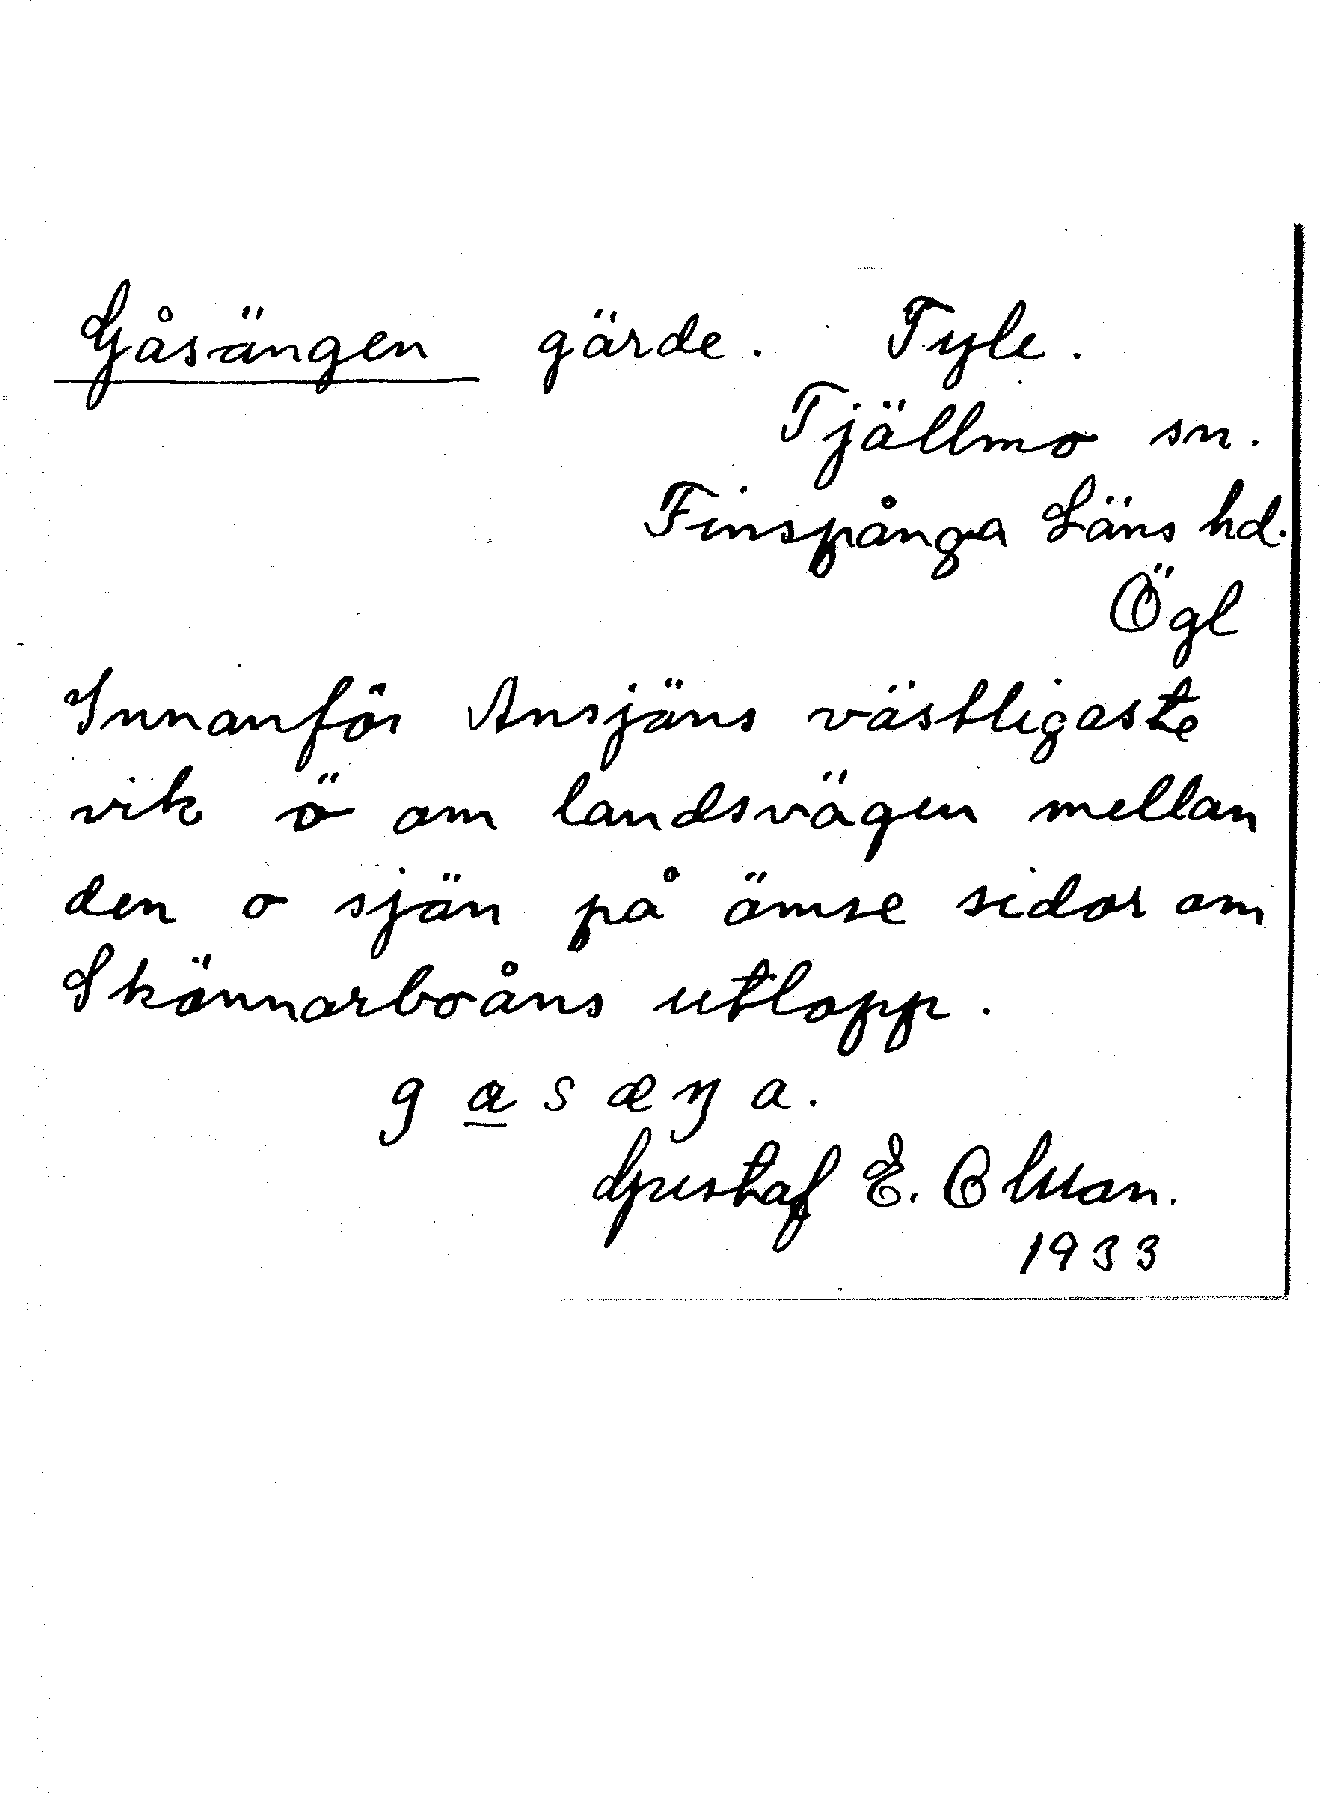 Gåsängen gärde. Tyle.
Tjällmo sn.
Finspånga Läns hd.
Ögl
Innanför Ansjöns västligaste
vik ö om landsvägen mellan
den o sjön på ömse sidor om
Skönnarboåns utlopp.
g a s æ ŋ a.
Gustaf E. Olsson.
1933